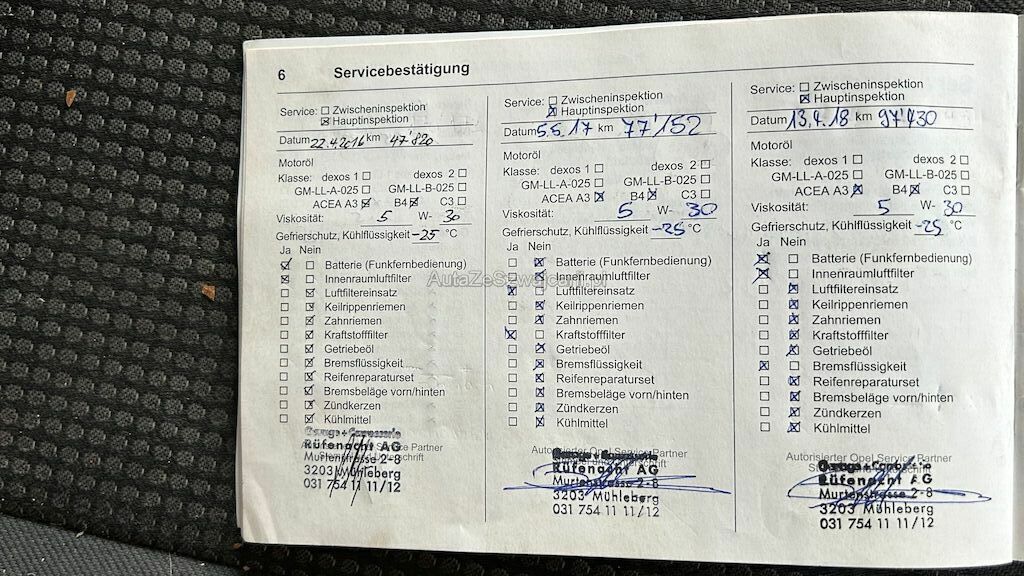 6 Servicebestätigung
Service: ☐ Zwischeninspektion
☒ Hauptinspektion
Datum 22.4.2016 km 47'820
Motoröl
Klasse: dexos 1 ☐ dexos 2 ☐
GM-LL-A-025 ☐ GM-LL-B-025 ☐
ACEA A3 ☒ B4 ☒ C3 ☐
Viskosität: 5 W- 30
Gefrierschutz, Kühlflüssigkeit -25 °C
Ja Nein
☒ ☐ Batterie (Funkfernbedienung)
☒ ☐ Innenraumluftfilter
☐ ☒ Luftfiltereinsatz
☐ ☒ Keilrippenriemen
☐ ☒ Zahnriemen
☐ ☒ Kraftstofffilter
☐ ☒ Getriebeöl
☐ ☒ Bremsflüssigkeit
☐ ☒ Reifenreparaturset
☐ ☒ Bremsbeläge vorn/hinten
☐ ☒ Zündkerzen
☐ ☒ Kühlmittel
Garage + Carrosserie
Rüfenacht AG
Service Partner
Murtenstrasse 2-8
3203 Mühleberg
031 754 11 11/12
Service: ☐ Zwischeninspektion
☒ Hauptinspektion
Datum 5.5.17 km 77'152
Motoröl
Klasse: dexos 1 ☐ dexos 2 ☐
GM-LL-A-025 ☐ GM-LL-B-025 ☐
ACEA A3 ☒ B4 ☒ C3 ☐
Viskosität: 5 W- 30
Gefrierschutz, Kühlflüssigkeit -25 °C
Ja Nein
☐ ☒ Batterie (Funkfernbedienung)
☐ ☒ Innenraumluftfilter
☒ ☐ Luftfiltereinsatz
☐ ☒ Keilrippenriemen
☐ ☒ Zahnriemen
☒ ☐ Kraftstofffilter
☐ ☒ Getriebeöl
☐ ☒ Bremsflüssigkeit
☐ ☒ Reifenreparaturset
☐ ☒ Bremsbeläge vorn/hinten
☐ ☒ Zündkerzen
☐ ☒ Kühlmittel
Autorisierter Opel Service Partner
Garage + Carrosserie
Rüfenacht AG
Murtenstrasse 2-8
3203 Mühleberg
031 754 11 11/12
Service: ☐ Zwischeninspektion
☒ Hauptinspektion
Datum 13.4.18 km 97'430
Motoröl
Klasse: dexos 1 ☐ dexos 2 ☐
GM-LL-A-025 ☐ GM-LL-B-025 ☐
ACEA A3 ☒ B4 ☒ C3 ☐
Viskosität: 5 W- 30
Gefrierschutz, Kühlflüssigkeit -25 °C
Ja Nein
☒ ☐ Batterie (Funkfernbedienung)
☒ ☐ Innenraumluftfilter
☐ ☒ Luftfiltereinsatz
☐ ☒ Keilrippenriemen
☐ ☒ Zahnriemen
☐ ☒ Kraftstofffilter
☐ ☒ Getriebeöl
☒ ☐ Bremsflüssigkeit
☐ ☒ Reifenreparaturset
☐ ☒ Bremsbeläge vorn/hinten
☐ ☒ Zündkerzen
☐ ☒ Kühlmittel
Autorisierter Opel Service Partner
Rüfenacht AG
Murtenstrasse 2-8
3203 Mühleberg
031 754 11 11/12